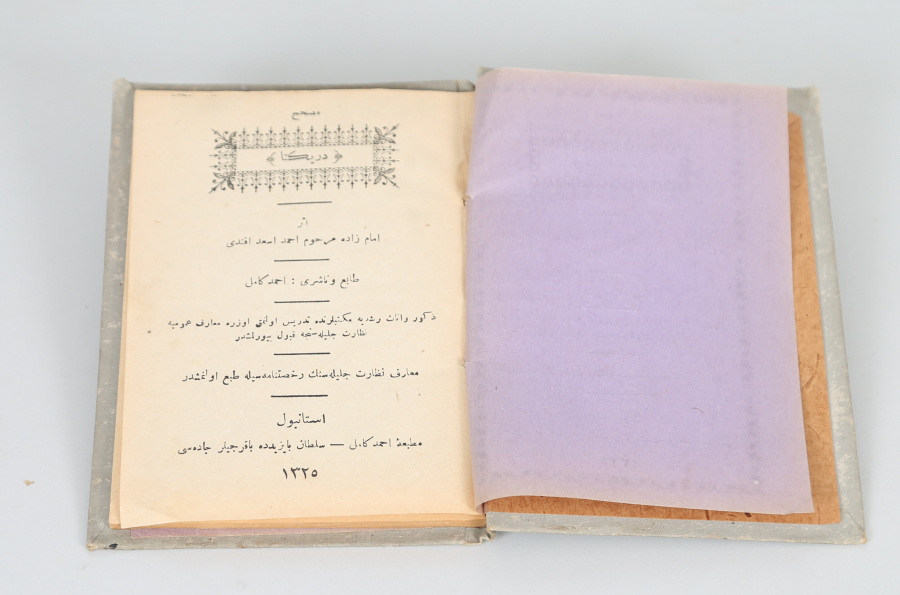 مصحح
﴿ دریكتا ﴾
اثر
امام زاده مرحوم احمد اسعد افندی
طابع و ناشری : احمد كامل
ذكور و اناث رشدیه مكتبلرنده تدریس اولنمق اوزره معارف عمومیه
نظارت جلیله‌سنجه قبول بیورلمشدر
معارف نظارت جلیله‌سنك رخصتنامه‌سیله طبع اولنمشدر
استانبول
مطبعهٔ احمد كامل — سلطان بایزیدده باقرجیلر جاده‌سی
١٣٢٥